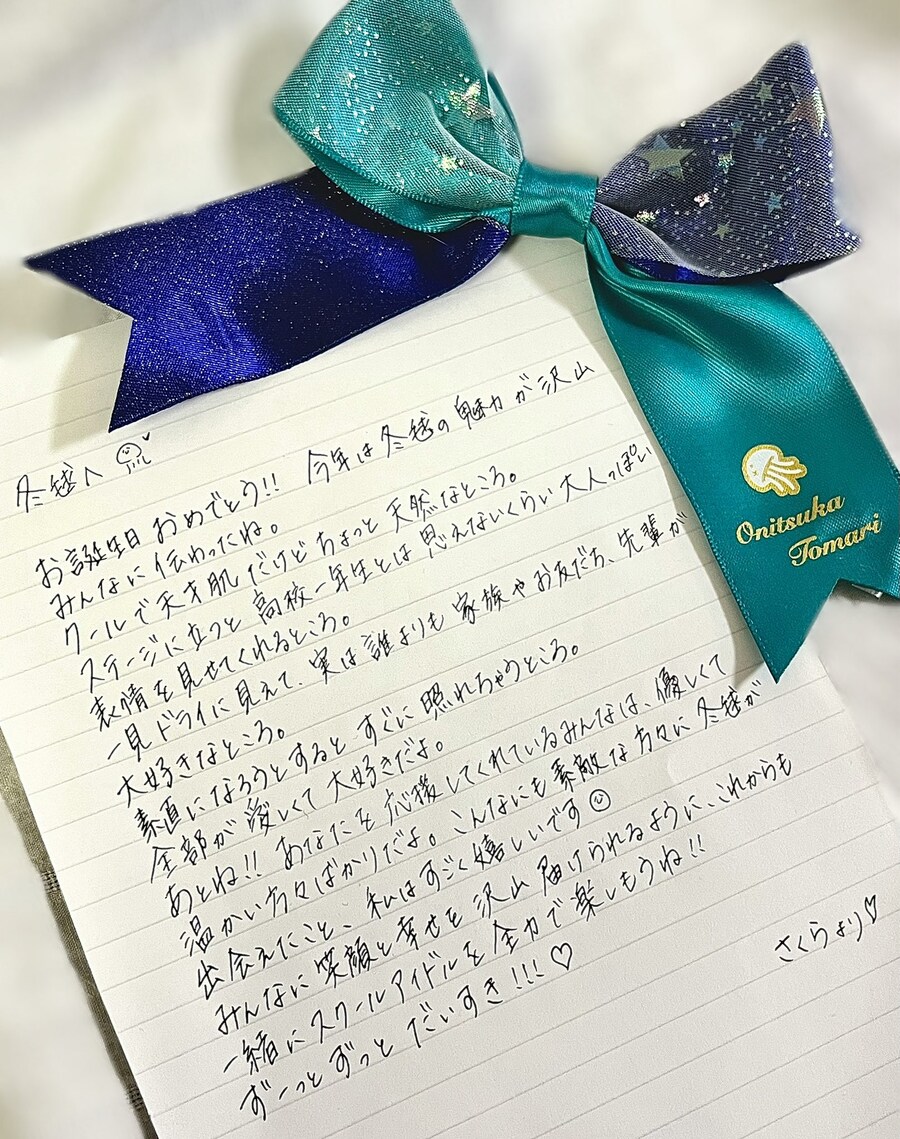 冬毬へ
お誕生日おめでとう!! 今年は冬毬の魅力が沢山
みんなに伝わったね。
クールで天才肌だけどちょっと天然なところ。
ステージに立つと高校一年生とは思えないくらい大人っぽい
表情を見せてくれるところ。
一見ドライに見えて、実は誰よりも家族やお友だち、先輩が
大好きなところ。
素直になろうとするとすぐに照れちゃうところ。
全部が愛しくて大好きだよ。
あとね!! あなたを応援してくれているみんなは、優しくて
温かい方々ばかりだよ。こんなにも素敵な方々に冬毬が
出会えたこと、私はすごく嬉しいです☺
みんなに笑顔と幸せを沢山届けられるように、これからも
一緒にスクールアイドルを全力で楽しもうね!!
ずーっとずっとだいすき!!!♡
さくらより♡
Onitsuka
Tomari